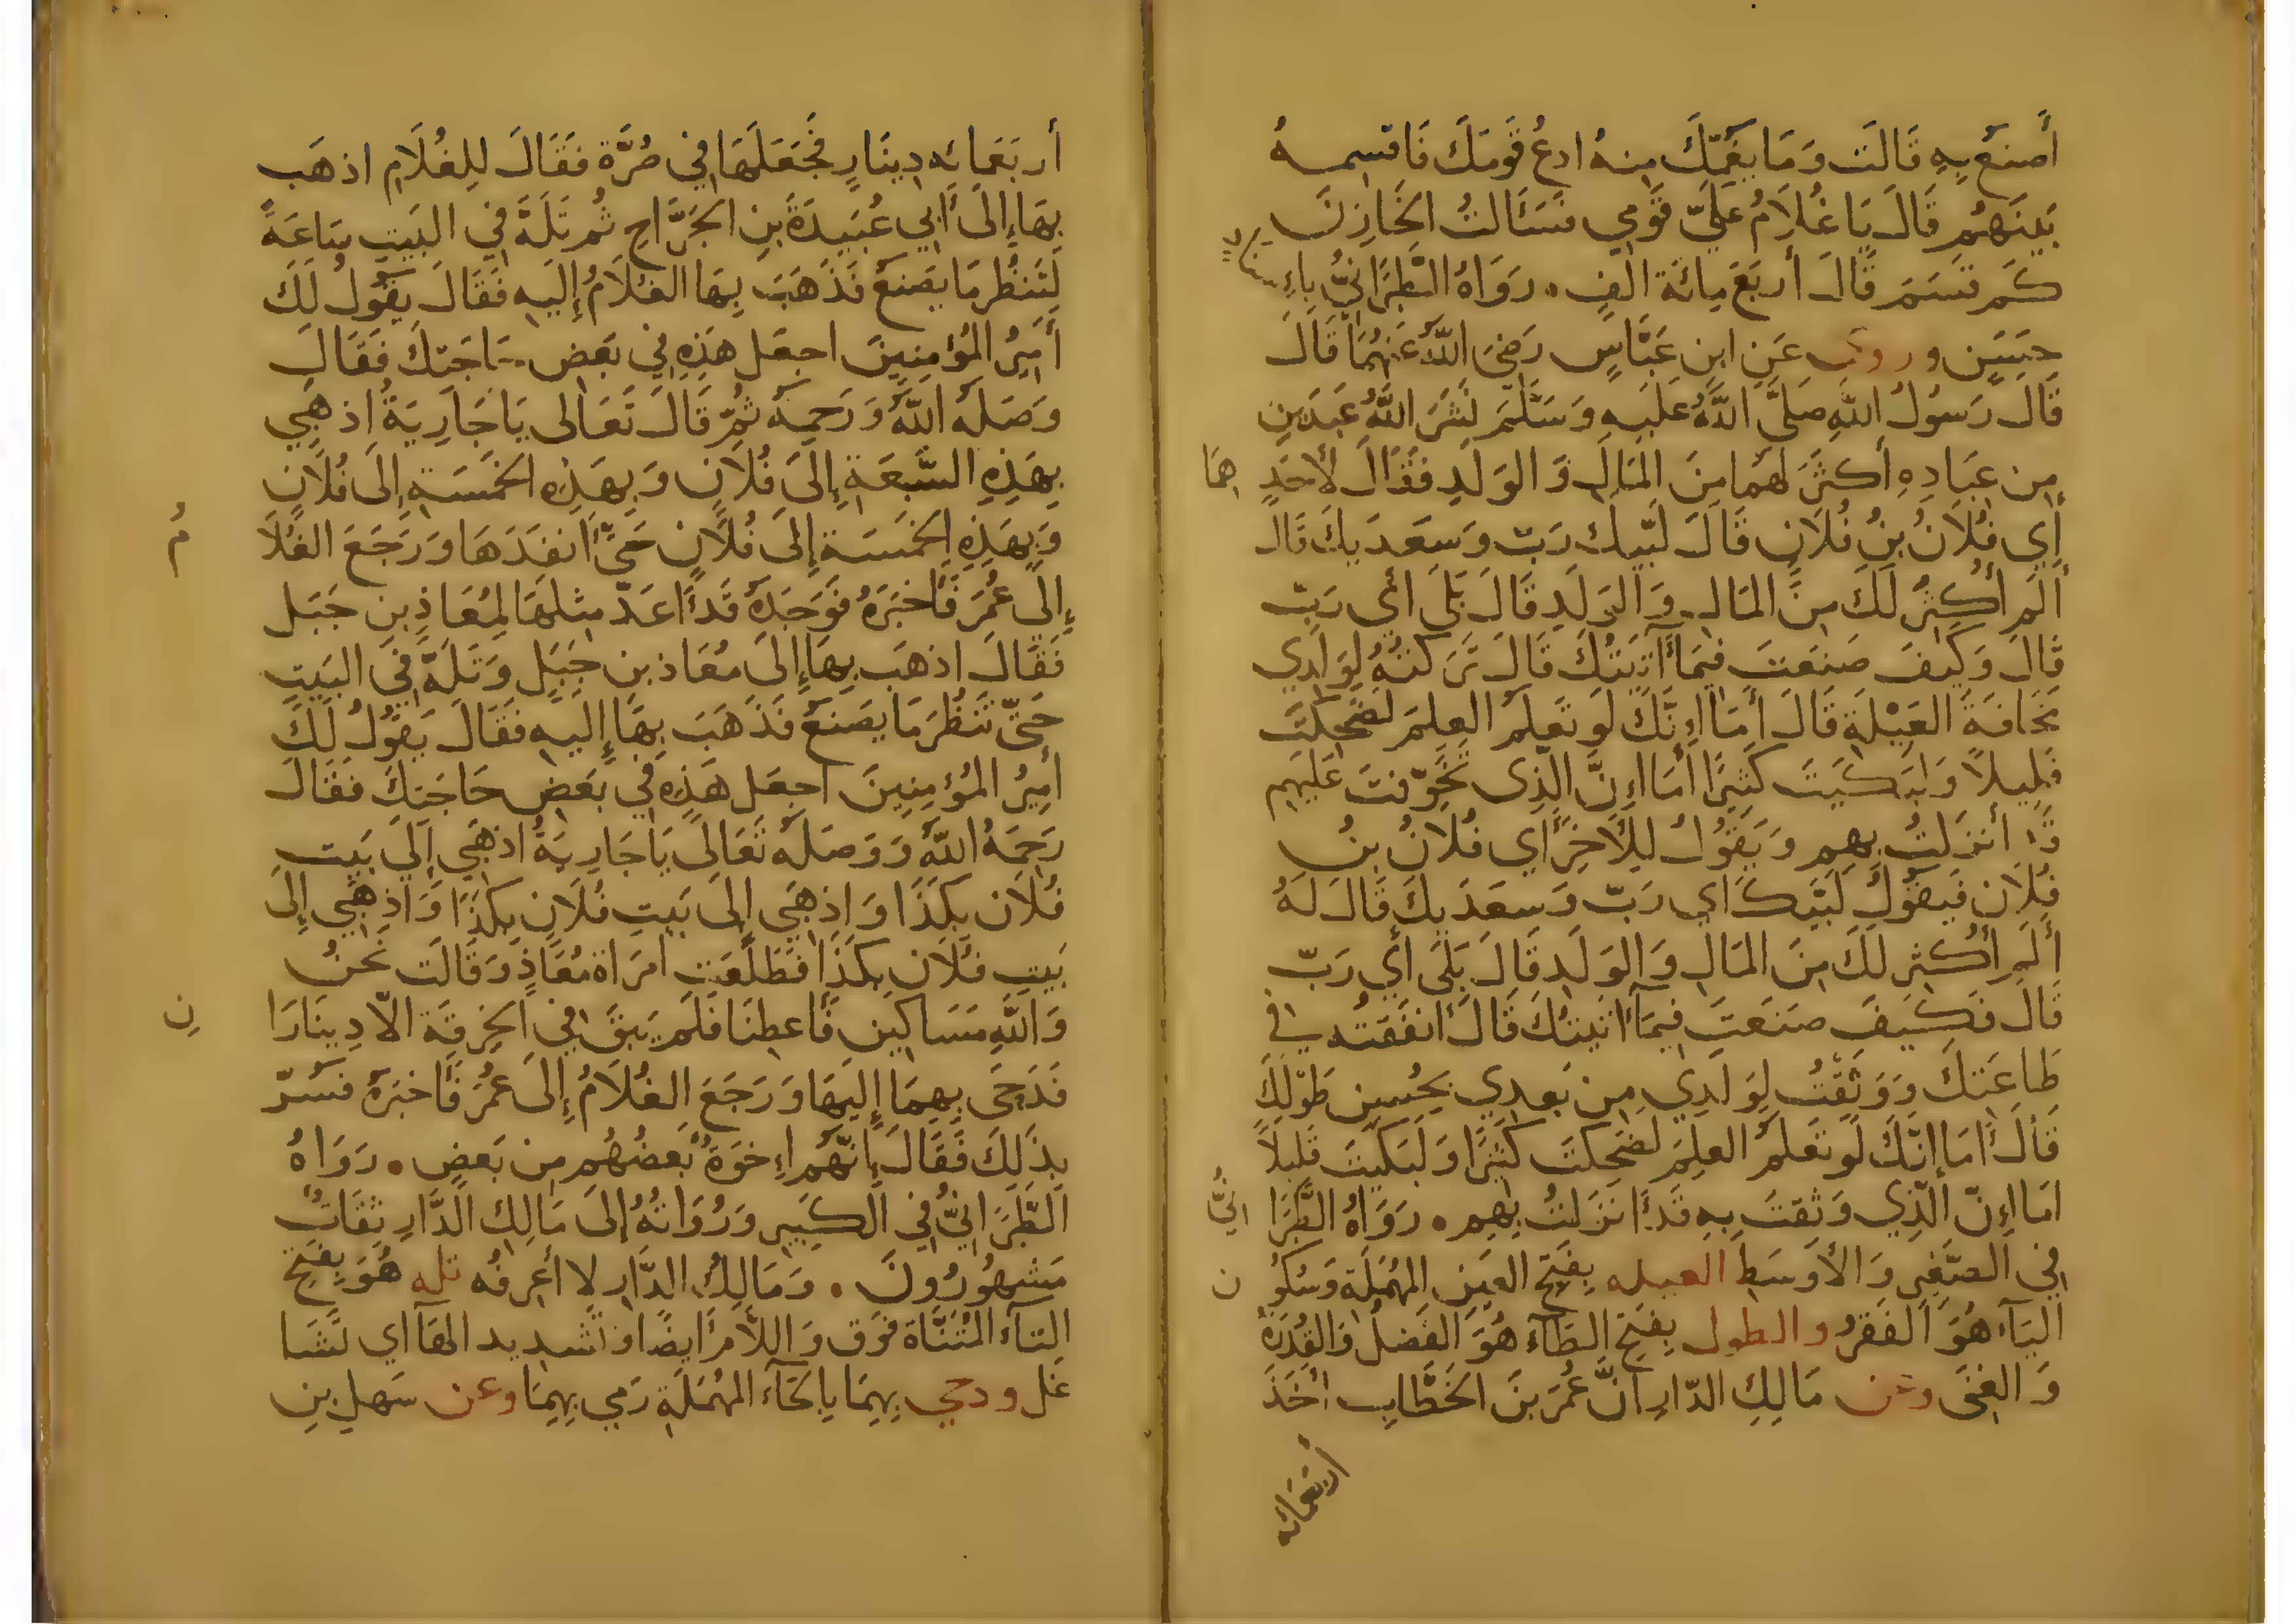 أَصنَعُ بِهِ قَالَت وَمَا يغُمّكَ مِنهُ ادعُ قَومَكَ فَاقسِمهُ
بَينَهُم قَالَ يَا غُلَامُ عَلَيَّ قَومِي فَسَأَلتُ الخَازِنَ
كَم قسَمَ قَالَ أَربَعَ مِائَة الفٍ. رَوَاهُ الطَّبَرَانِيُّ بِاءِسنادٍ
حسَنٍ وروي عَنِ ابنِ عَبَّاسٍ رَضِيَ اللّهُ عَنهُمَا قَالَ
قَالَ رَسُولُ اللّهِ صَلَّى اللَّهُ عَلَيهِ وَسَلَّمَ نَشَرَ اللَّهُ عَبدَينِ
مِن عِبَادِهِ أَكثَرَ لَهُمَا مِنَ المَالِ وَالوَلَدِ فقَالَ لأَحَدِهِمَا
أَي فُلَانُ بنُ فُلَانٍ قَالَ لَبَّيكَ رَبّ وَسَعدَيكَ قَالَ
أَلَم أُكثِر لَكَ مِنَ المَالِ وَالوَلَدِ قَالَ بَلَى أَي رَبّ
قَالَ وَكَيفَ صَنَعتَ فِيمَا آتَيتُكَ قَالَ تَرَكتُهُ لِوَلَدِي
مَخَافَةَ العَيْلَةِ قَالَ أَمَا اءِنَّكَ لَو تَعلَمُ العِلمَ لَضَحِكتَ
قَلِيلاً وَلبَكَيتَ كَثِيرًا أَمَا اءِنَّ الَّذِي تَخَوّفتَ عَلَيهِم
قَد أَنزَلتُ بِهِم وَيَقُولُ لِلآخَرِ أَي فُلَانُ بنُ
فُلَانٍ فَيقُولُ لَبَّيكَ أَي رَبّ وَسَعدَيكَ قَالَ لَهُ
أَلَم أُكثِر لَكَ مِنَ المَالِ وَالوَلَدِ قَالَ بَلَى أَي رَبّ
قَالَ فَكَيفَ صَنَعتَ فِيمَا آتَيتُكَ قَالَ أَنفَقتُه فِي
طَاعَتكَ وَوَثِقتُ لِوَلَدِي مِن بَعدِي بِحُسنِ طَولِكَ
قَالَ أَمَا إِنَّكَ لَو تَعلَمُ العِلمَ لَضَحِكتَ كَثِيرًا وَلَبَكَيتَ قَلِيلاً
امَا اءِنّ الَّذِي وَثِقتَ بِهِ قَد أَنزَلتُ بِهِم. رَوَاهُ الطَّبَرَانِيُّ
فِي الصَّغِيرِ وَالأَوسَطِ العيله بِفَتحِ العَينِ المُهمَلَةِ وَسُكُونِ
اليَآءِ هُوَ الفَقرُ والطول بِفَتحِ الطَآءِ هُوَ الفَضلُ وَالقُدرَةُ
وَالغِنَى وعن مَالِكِ الدّارِ أَنَّ عُمَرَ بنَ الخَطَّابِ أَخَذَ
أربعمائه
أربَعَمائه دِينَارٍ فَجَعَلَهَا فِي صُرَّة فَقَالَ لِلغُلَامِ اذهَب
بِهَا إِلَى أَبِي عُبَيدَةَ بنِ الجَرَّاحِ ثُم تَلَهَّ فِي البَيتِ سَاعَةً
لِتَنظُر مَا يَصنَعُ فَذَهَبَ بِهَا الغُلَامُ إِلَيهِ فَقَالَ يقُولُ لَكَ
أَمِيرُ المُؤمِنِينَ اجعَل هَذِهِ فِي بَعضِ حَاجَتكَ فَقَالَ
وَصَلَه اللّهُ وَرَحِمَهُ ثُمّ قَالَ تَعَالَي يَا جَارِيَةُ اذهَبِي
بِهَذِهِ السَّبعَةِ إِلَى فُلَانٍ وَبِهَذِهِ الخَمسَةِ إِلَى فُلَانٍ
وَبِهَذِهِ الخَمسَة إِلَى فُلَانٍ حَتَّى أَنفَدَهَا وَرَجَعَ الغُلَامُ
إِلَى عُمَرَ فَأَخبَرَهُ فَوَجَدَهُ قَد أَعَدّ مِثلَهَا لِمُعَاذِ بنِ جَبَل
فَقَالَ اذهَب بِهَا إِلَى مُعَاذ بنِ جَبَلٍ وَتَلَهَّ فِي البَيتِ
حَتّى تَنظُرَ مَا يَصنَعُ فَذَهَبَ بِهَا إِلَيهِ فَقَالَ يَقُولُ لَكَ
أَمِيرُ المُؤمِنِينَ اجعَل هَذِهِ فِي بَعضِ حَاجَتِكَ فَقَالَ
رَحِمَهُ اللّهُ وَوَصَلَهُ تَعَالَي يَا جَارِيَةُ اذهَبِي إِلَى بَيتِ
فُلَان بِكَذَا وَاذهَبِي إِلَى بَيتِ فُلَانٍ بِكَذَا وَاذهَبِي إِلَى
بَيتِ فُلَانٍ بِكَذَا فَطَلَعَتِ امرَأَة مُعَاذٍ وَقَالَت نَحنُ
وَاللّهِ مَسَاكِين فَأَعطِنَا فَلَم يَبقَ فِي الخِرقَة الاّ دِينَارَانِ
فَدَحَى بِهِمَا إِلَيهَا وَرَجَعَ الغُلَامُ إِلَى عُمَرَ فَأَخبَرَهُ فَسُرّ
بِذَلِكَ فَقَالَ إِنَّهُم اءِخوَةٌ بَعضُهُم مِن بَعضٍ. رَوَاهُ
الطَّبَرَانِيُّ فِي الكَبِيرِ وَرُوَاتُهُ إِلَى مَالِكِ الدَّارِ ثِقَاتٌ
مَشهُورُونَ. وَمَالِكُ الدَّارِ لا أَعرِفُه تله هُوَ بِفَتحِ
التآءِ المُثَنَّاة فَوق وَاللاَّم أَيضًا وَتَشدِيد الهَآ اي تَشَا
غَل ودحي بِهِمَا بِالحَآء المُهمَلَةِ رَمي بِهِمَا وعن سَهلِ بنِ